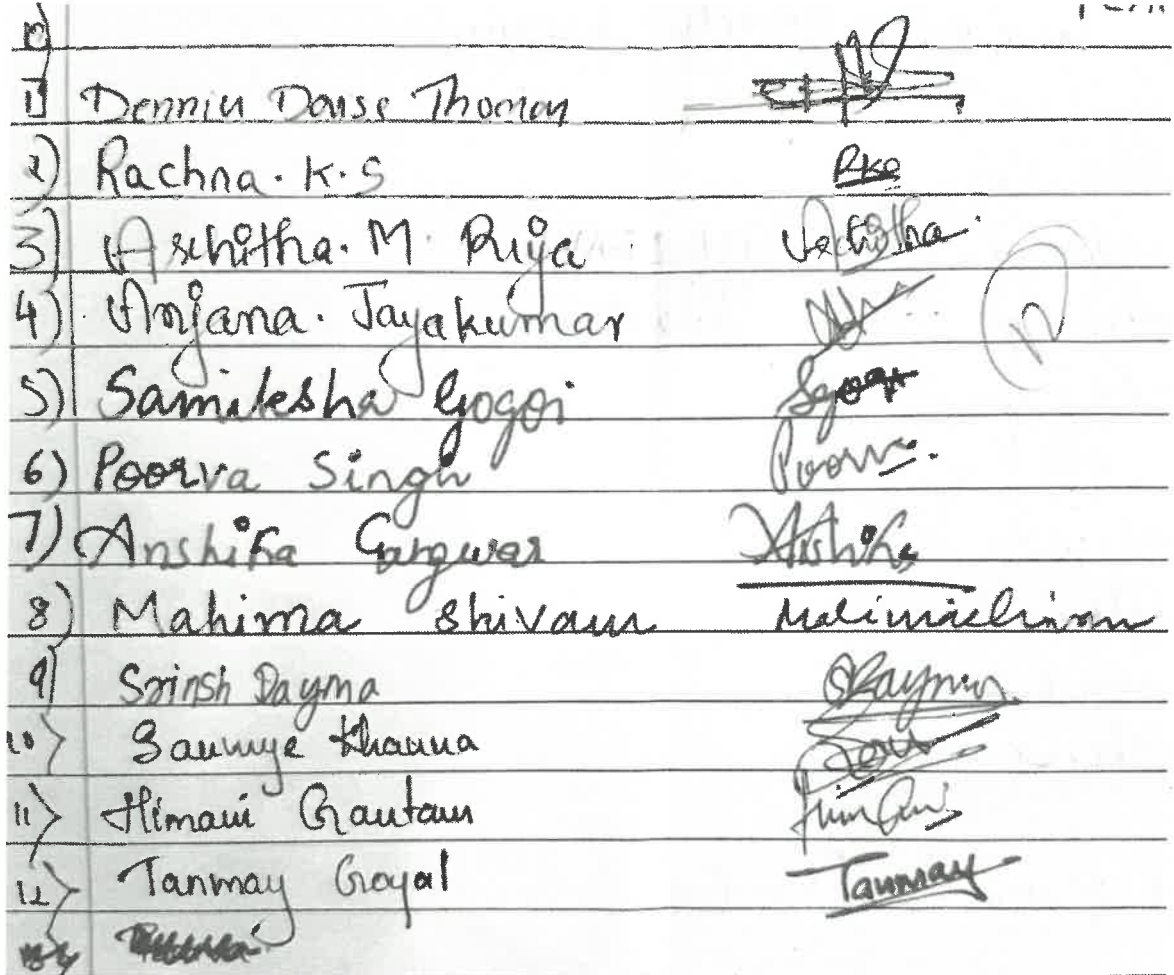 1) Dennin Dause Thomas
2) Rachna. K. S RKS
3) Architha. M. Rija Architha.
4) Anjana. Jayakumar
5) Samiksha Gogoi Sgogoi
6) Poorva Singh Poorva.
7) Anshika Gangwar Anshika
8) Mahima Shivam Mahimashivam
9) Srinsh Dayma SDayma
10) Saumye Khanna Sau
11) Himani Gautam Himani
12) Tanmay Goyal Tanmay
12